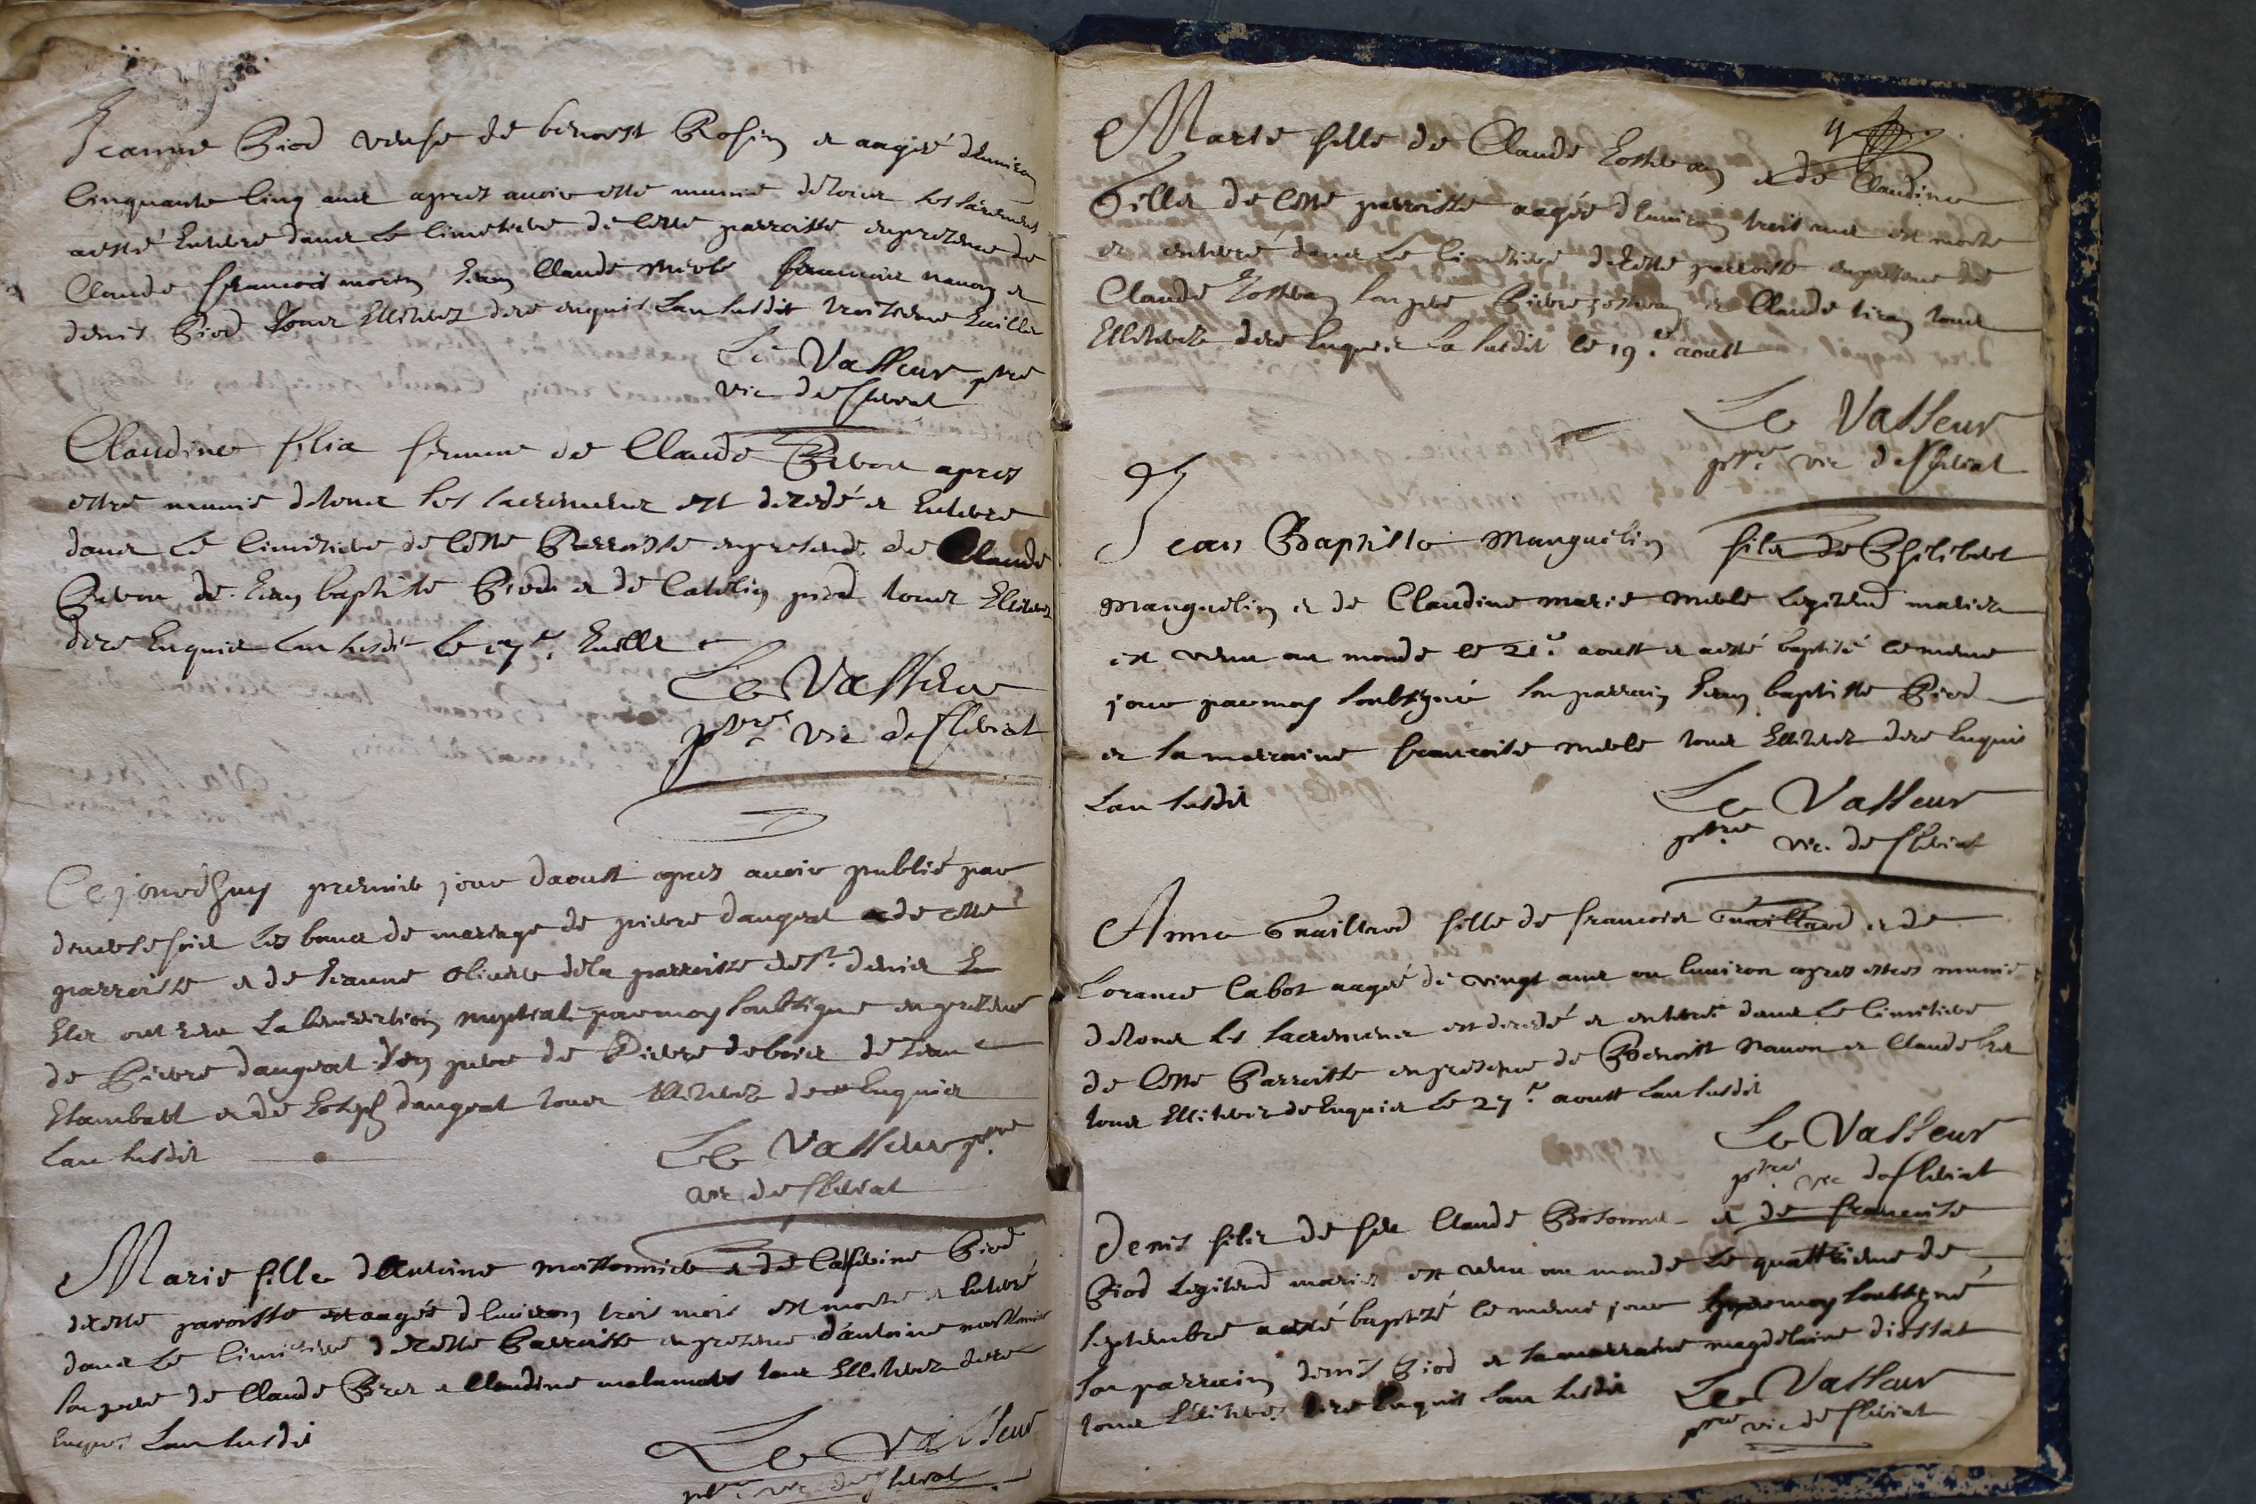 Jeanne Piod veufe de benoist Rosin et aagée denviron
Cinquante cinq ans apres avoir esté munie de tous les sacremens
a esté enterre dans le cimetiere de cette parroisse en presence de
Claude francois morin Jean Claude Merle francois navon et
denis Piod tous illiterez de ce enquis Lan susdit troisieme Juillet
Le Vasseur ptre
vic de fleriat
Claudine filia femme de Claude apres
estre munie de tous les sacremens est decedé et enterre
dans le cimetiere de cette Parroisse en presence de Claude
de Jean baptiste Piod et de Catelin piod tous illiterez
de ce enquis Lan susdit le 17e Juillet
Le Vasseur
ptre vic de fleriat
Ce jourdhuy premier jour daoust apres avoir publié par
diverse fois les bans de mariage de pierre daugerat de cette
parroisse et de Jeanne olivier de la parroisse de St denis
Ils ont receu La benediction nuptiale par moy soubsigne en presence
de Pierre daugerat son pere de Pierre debois de Jean
et de Joseph daugerat tous illiterez de ce enquis
Lan susdit
Le Vasseur ptre
vic de fleriat
Marie fille dAntoine moissonnier et de Catherine Piod
de cette paroisse et aagée denviron trois mois est morte et enterré
dans le cimetiere de cette Parroisse en presence dantoine moissonnier
son pere de Claude Brer et Claudine tous illiterez de ce
enquis Lan susdit
Le Vasseur
ptre vic de fleriat
Marie fille de Claude Josseran et de Claudine
de cette parroisse aagée denviron trois ans est morte
et enterré dans le cimetiere de cette parroisse en presence de
Claude Josseran son pere Pierre Josseran et Claude tiran tous
illiterez de ce enquis La susdit le 19e aoust
Le Vasseur
ptre vic de fleriat
Jean Baptiste Manguelin fils de Philibert
Manguelin et de Claudine marie merle legitend mariez
est venu au monde le 21e aoust et a esté baptisé le meme
jour par moy soubsigné son parrain Jean baptiste Piod
et sa marraine francoise merle tous illiterez de ce enquis
Lan susdit
Le Vasseur
ptre vic. de fleriat
Anne Guaillard fille de francois Guaillard et de
Lorence Cabot aagée de vingt ans ou environ apres estres munie
de tous les sacremens est decedé et enterré dans le cimetiere
de cette Parroisse en presence de Benoist navon et Claude brer
tous illiterez de enquis le 27e aoust Lan susdit
Le Vasseur
ptre vic de fleriat
Denis fils de Claude et de francoise
Piod legitend mariez est venu au monde le quattrieme de
septembre a esté baptizé le meme jour par moy soubsigné
son parrain denis Piod et sa marraine magdelaine
tous illiterez de ce enquis Lan susdit
Le Vasseur
ptre vic de fleriat